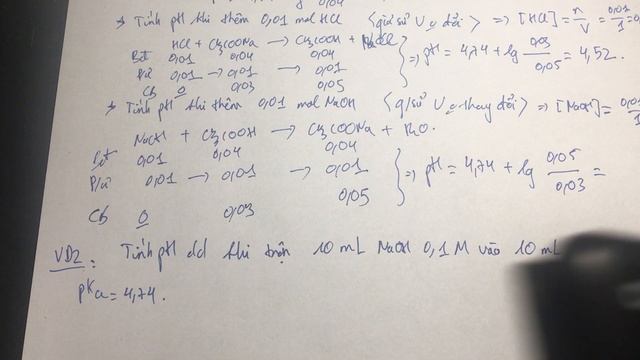 0,04
→ Tính pH khi thêm 0,01 mol HCl <giả sử V ko đổi> => [HCl] = n/V = 0,01/1 =0
HCl + CH3COONa → CH3COOH + NaCl
Bđ 0,01 0,04 0,04
P/ứ 0,01 → 0,01 → 0,01
Cb 0 0,03 0,05
=> pH = 4,74 + lg 0,03/0,05 = 4,52.
→ Tính pH khi thêm 0,01 mol NaOH <g/sử V ko thay đổi> => [NaOH] = 0,01/1
NaOH + CH3COOH → CH3COONa + H2O.
Bđ 0,01 0,04 0,04
P/ứ 0,01 → 0,01 → 0,01
Cb 0 0,03 0,05
=> pH = 4,74 + lg 0,05/0,03 =
VD2: Tính pH dd khi trộn 10 mL NaOH 0,1 M vào 10 mL
pKa = 4,74.